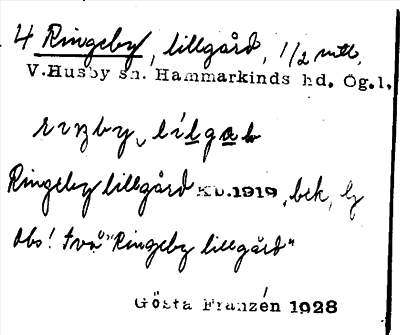 4 Ringeby, lillgård, 1/2 mtl.
V.Husby sn. Hammarkinds hd. Ög.l.
Ringeby lillgård Kb.1919, bek,
Obs! två "Ringeby lillgård"
Gösta Franzén 1928